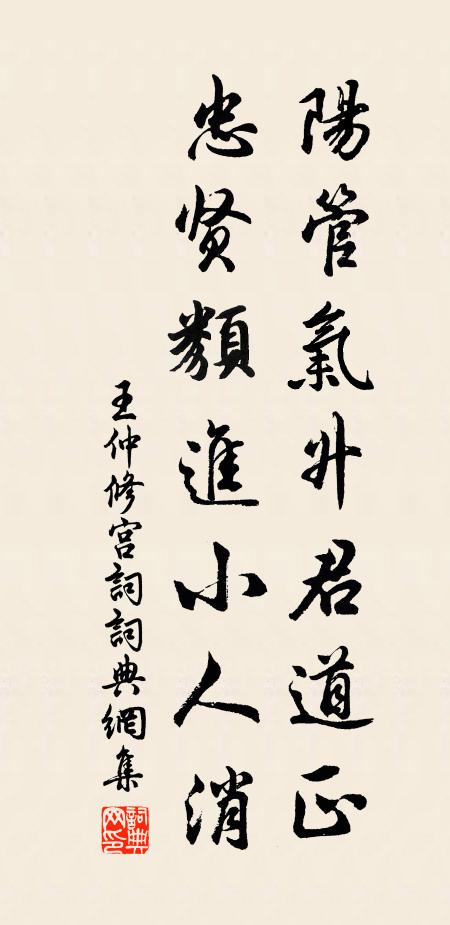 陽管氣升君道正
忠贤類進小人消
王仲修宫詞詞典網集
詞典網印